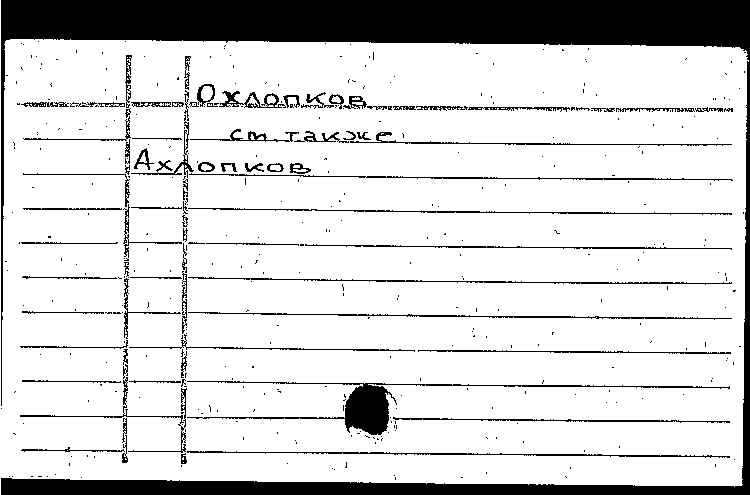 Охлопков
см. также
Ахлопков